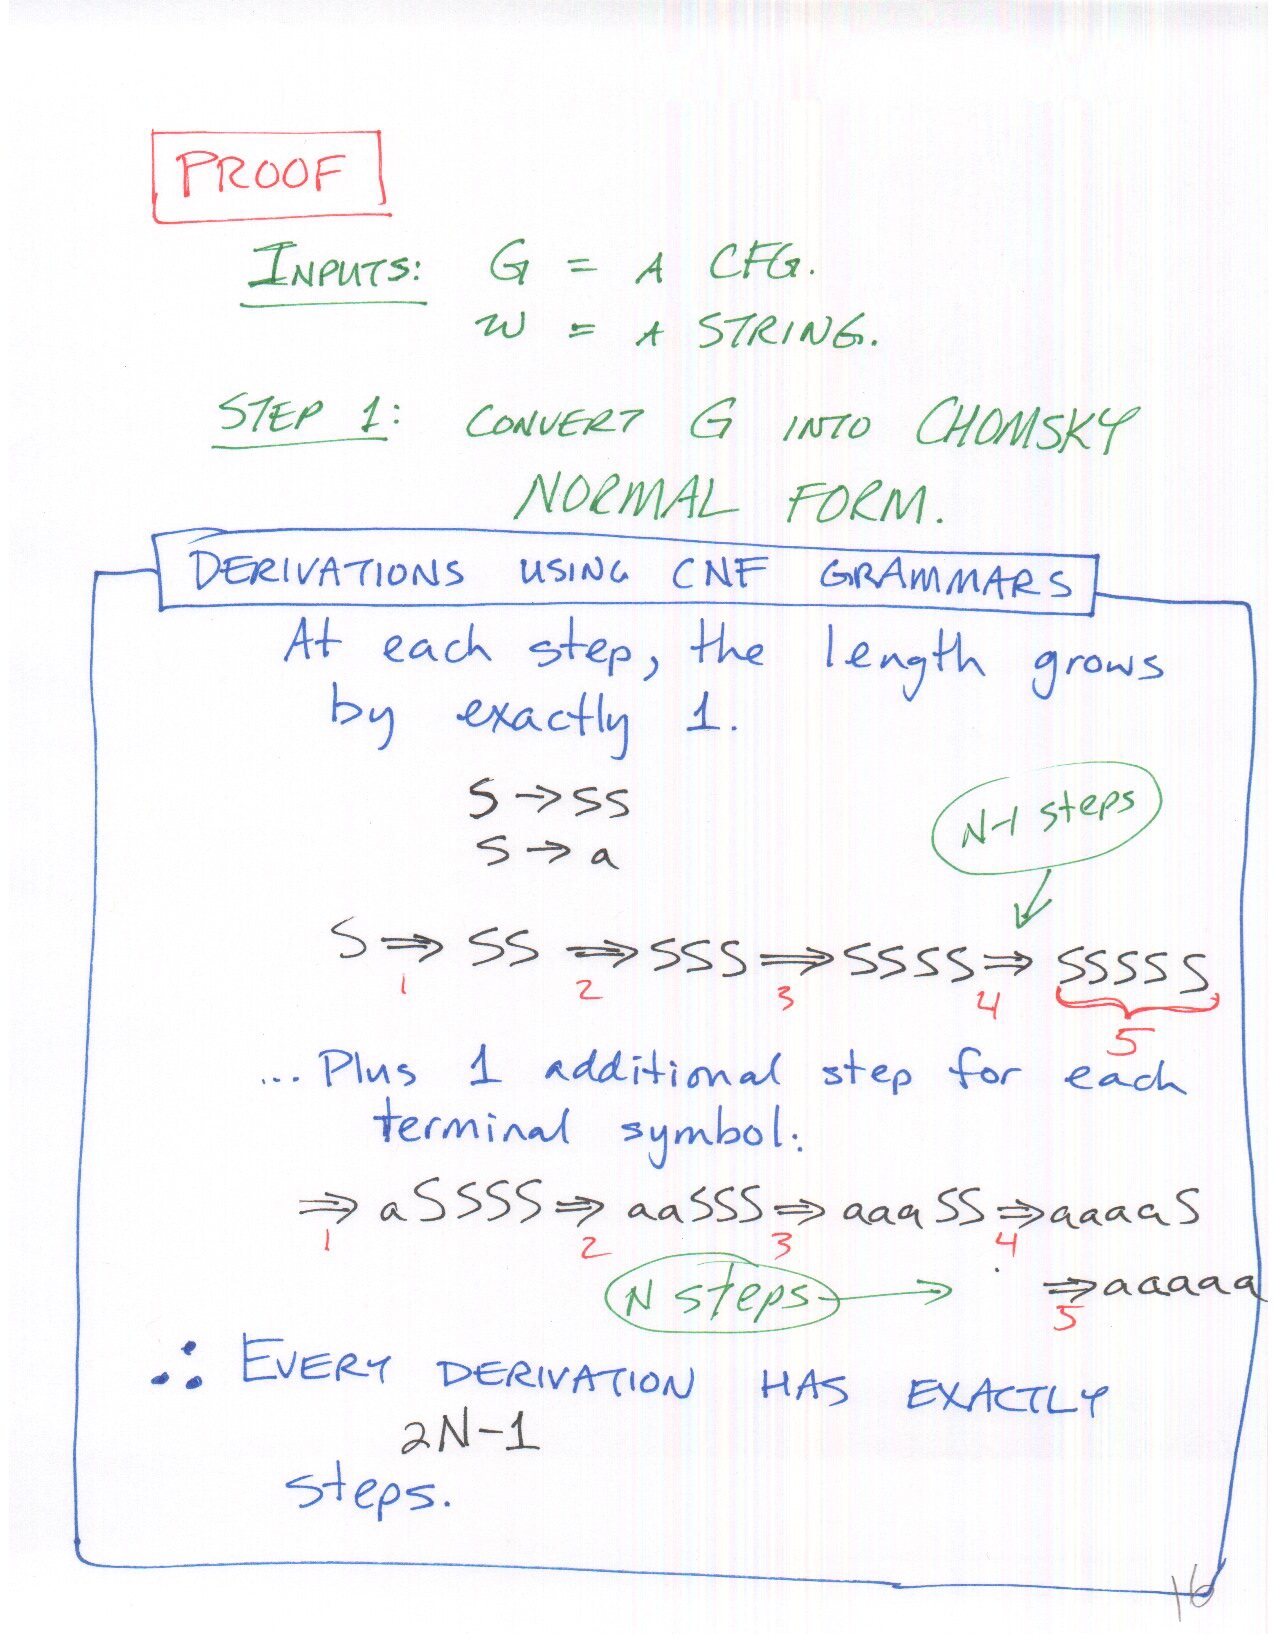 PROOF
INPUTS: G = A CFG.
w = A STRING.
STEP 1: CONVERT G INTO CHOMSKY
NORMAL FORM.
DERIVATIONS USING CNF GRAMMARS
At each step, the length grows
by exactly 1.
S → SS
S → a
N-1 steps
S ⇒ SS ⇒ SSS ⇒ SSSS ⇒ SSSSS
1 2 3 4 5
... Plus 1 additional step for each
terminal symbol:
⇒ aSSSS ⇒ aaSSS ⇒ aaaSS ⇒ aaaaS
1 2 3 4
N steps → ⇒ aaaaa
5
∴ EVERY DERIVATION HAS EXACTLY
2N-1
steps.
16